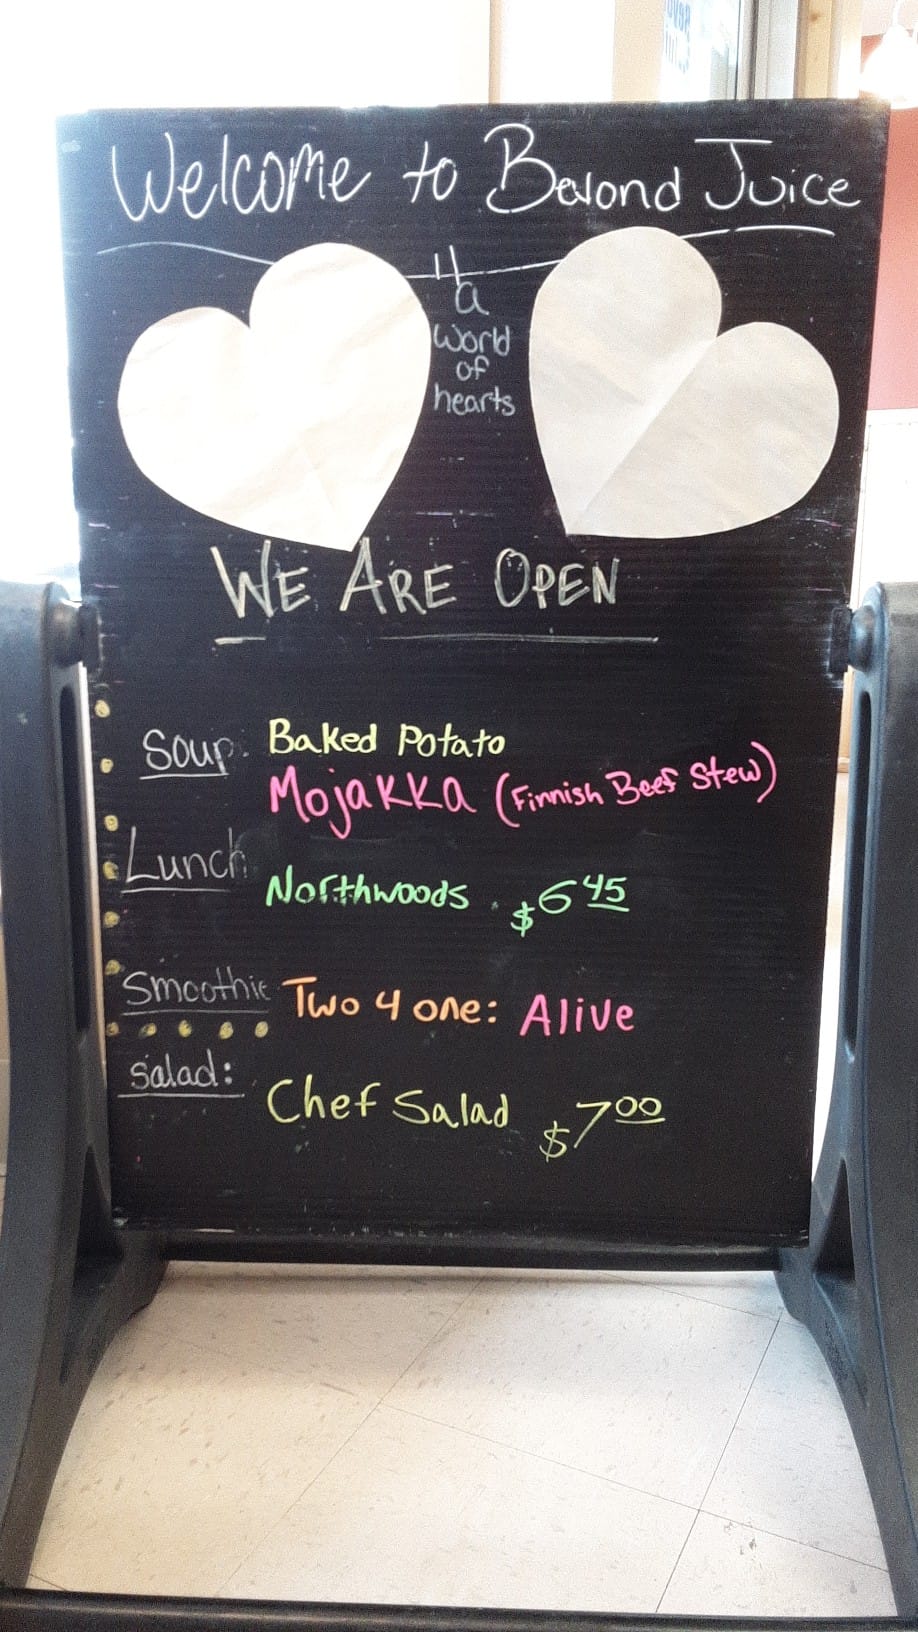 Welcome to Beyond Juice
"a
world
of
hearts
WE ARE OPEN
Soup: Baked Potato
Mojakka (Finnish Beef Stew)
Lunch
Northwoods $6 45
Smoothie Two 4 one: Alive
Salad:
Chef Salad $7 00